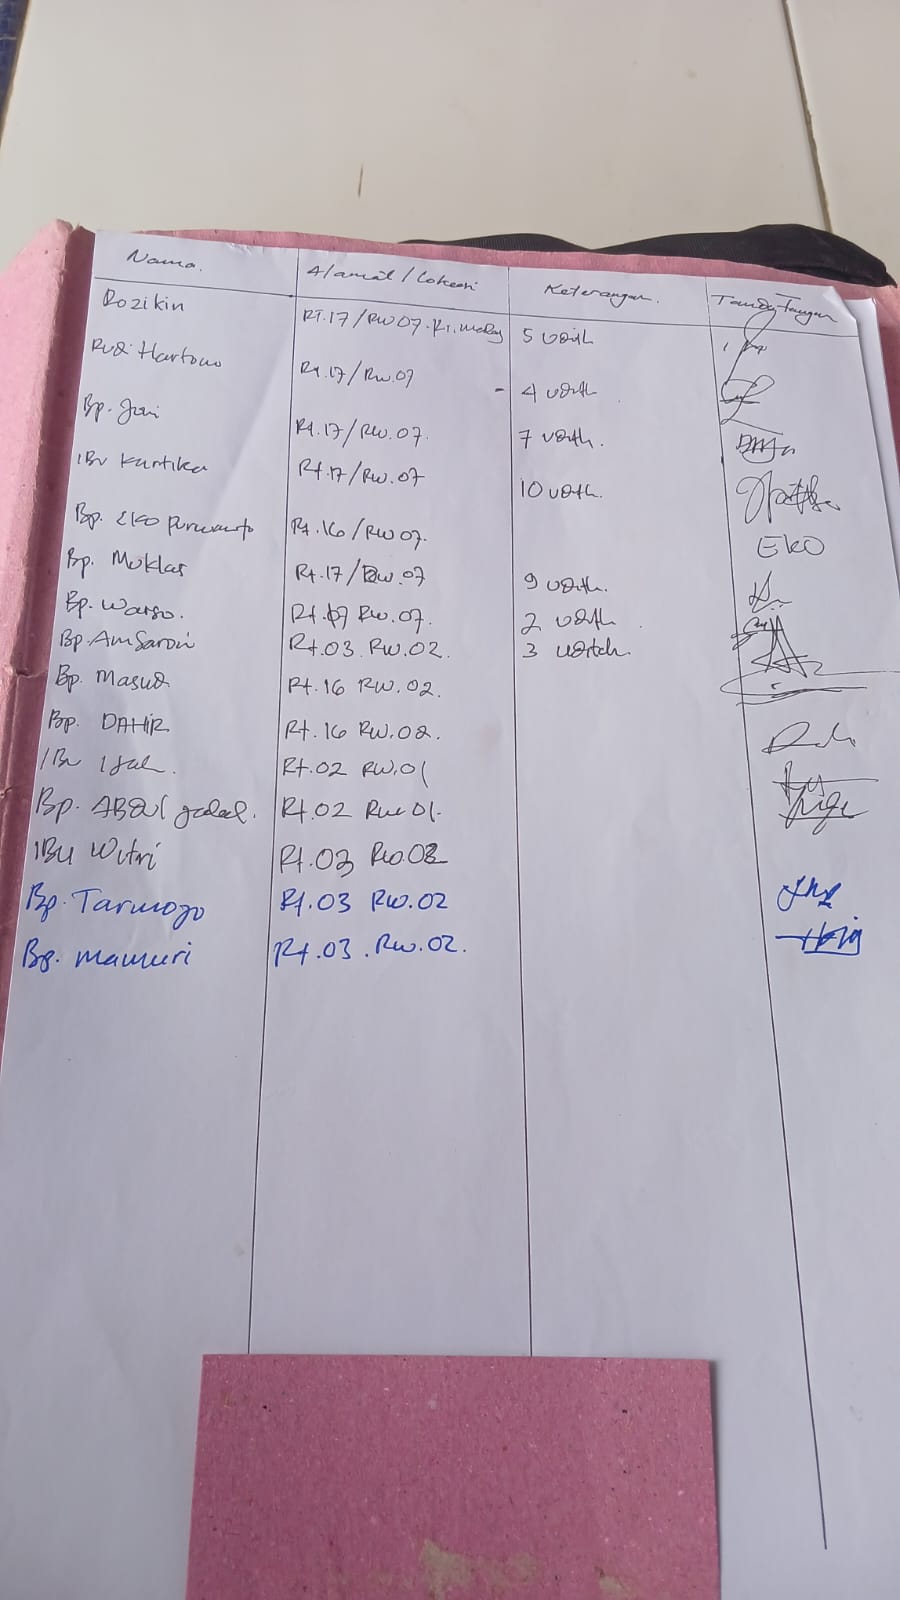 Nama. Alamat/Lokasi Keterangan. Tanda Tangan
Rozikin RT.17/RW 07. 5
Rudi Hartono Rt.17/Rw.07 - 4
Bp. Joni Rt.17/Rw.07. 7
IBu Kartika Rt.17/Rw.07 10
Bp. Eko purwanto Rt.16/RW 07. EKO
Bp. Muklas Rt.17/Rw.07 9
Bp. Warso. Rt. Rw.07. 2
Bp. AmSaroni Rt.03. Rw.02. 3
Bp. Masud Rt.16 RW.02.
Bp. DAHIR Rt.16 RW.02.
IBu Rt.02 RW.01
Bp. ABdul Rt.02 Rw 01.
IBu Witri Rt.03 Rw.02
Bp. Tarmojo Rt.03 RW.02
Bp. mamuri Rt.03. Rw.02.